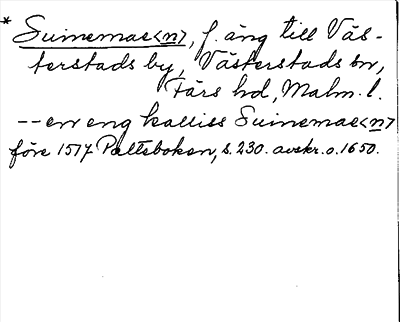 * Suinemae<n>, f. äng till Väs-
terstads by, Västerstads sn,
Färs hd, Malm. l.
-- en eng kalliss Suinemae<n>
före 1517 Paltebokan, s. 230. avskr. o. 1650.